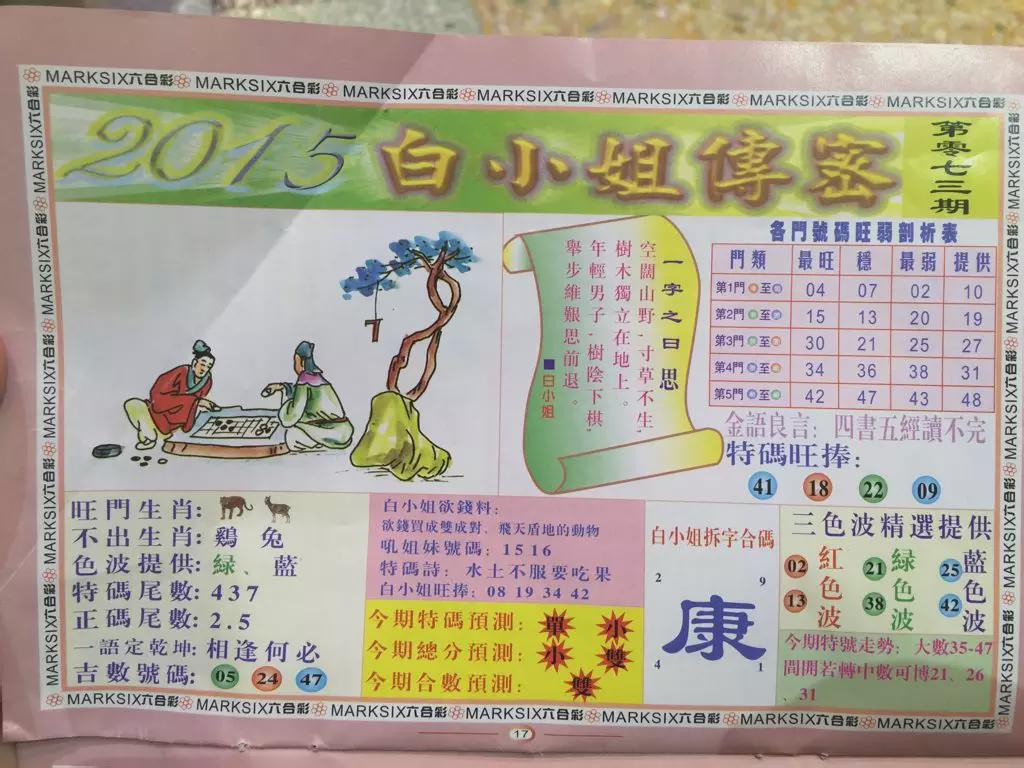 MARKSIX六合彩 MARKSIX六合彩 MARKSIX六合彩 MARKSIX六合彩 MARKSIX六合彩 MARKSIX六合彩 MARKSIX六合彩
2015 白小姐傳密
第零七三期
一字之曰思
空闊山野,寸草不生,
樹木獨立在地上。
年輕男子,樹陰下棋,
舉步維艱思前退。
■白小姐
各門號碼旺弱剖析表
門類 最旺 穩 最弱 提供
第1門 至 04 07 02 10
第2門 至 15 13 20 19
第3門 至 30 21 25 27
第4門 至 34 36 38 31
第5門 至 42 47 43 48
金語良言: 四書五經讀不完
特碼旺捧:
41 18 22 09
旺門生肖:
不出生肖: 鷄 兔
色波提供: 綠、藍
特碼尾數: 437
正碼尾數: 2.5
一語定乾坤: 相逢何必
吉數號碼: 05 24 47
白小姐欲錢料:
欲錢買成雙成對、飛天盾地的動物
吼姐妹號碼: 15 16
特碼詩: 水土不服要吃果
白小姐旺捧: 08 19 34 42
今期特碼預測: 單 小
今期總分預測: 小 雙
今期合數預測: 雙
白小姐拆字合碼
2 9
康
4 1
三色波精選提供
02 13 紅色波
21 38 緑色波
25 42 藍色波
今期特號走勢: 大數35-47
間開若轉中數可博21、26
、31
MARKSIX六合彩 MARKSIX六合彩 MARKSIX六合彩 MARKSIX六合彩 MARKSIX六合彩 MARKSIX六合彩 MARKSIX六合彩
17